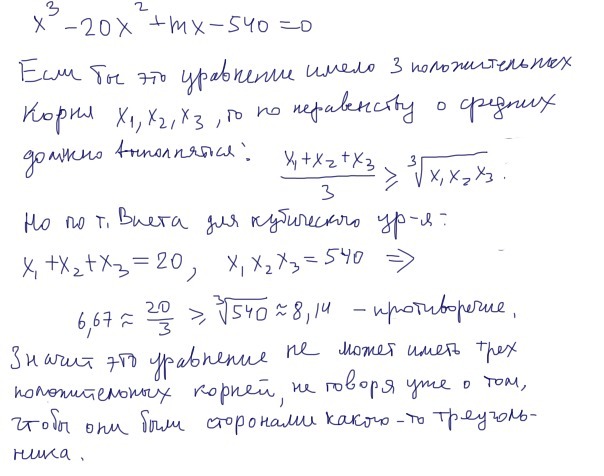 x³ - 20x² + mx - 540 = 0
Если бы это уравнение имело 3 положительных
корня x₁, x₂, x₃, то по неравенству о средних
должно выполнятся: (x₁+x₂+x₃)/3 ≥ ∛(x₁x₂x₃).
Но по т. Виета для кубического ур-я:
x₁+x₂+x₃ = 20, x₁x₂x₃ = 540 ⇒
6,67 ≈ 20/3 ≥ ∛540 ≈ 8,14 - противоречие.
Значит это уравнение не может иметь трех
положительных корней, не говоря уже о том,
чтобы они были сторонами какого-то треуголь-
ника.